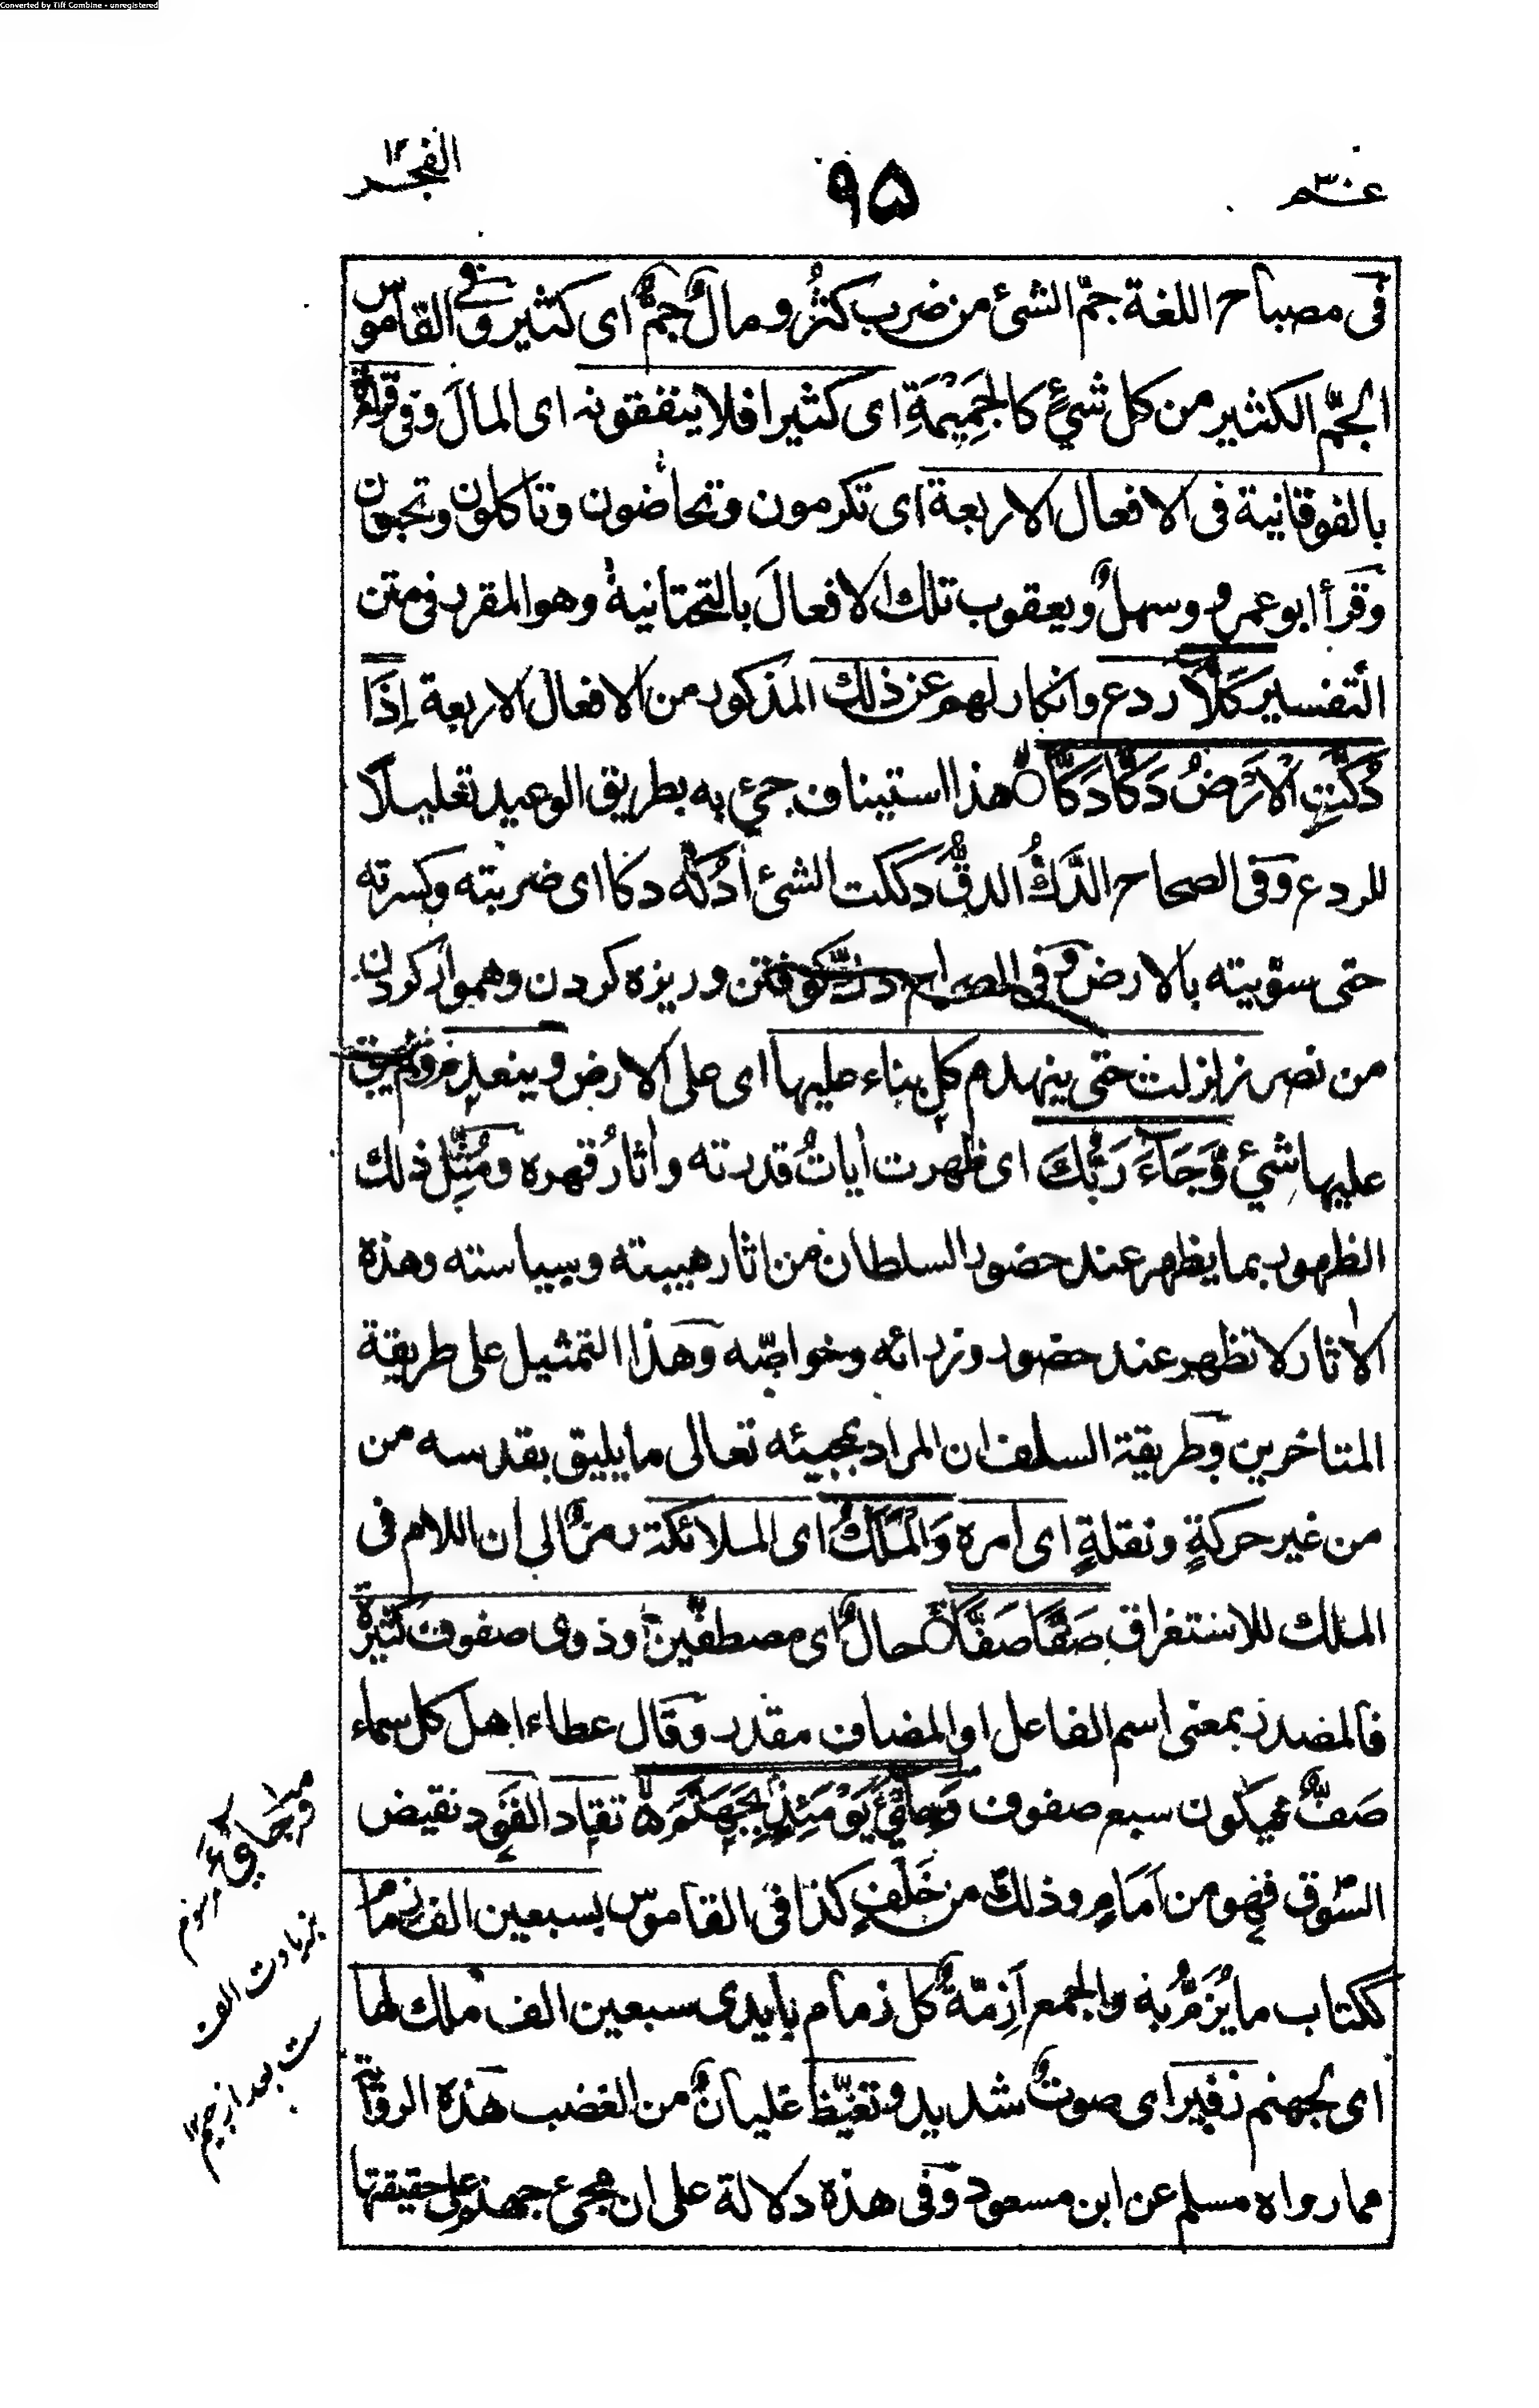 Converted by Tiff Combine - unregistered
عم ٣٠
٩۵
الفجر
فى مصباح اللغة جمّ الشئ من ضرب كثُر و مالٌ جمٌّ اى كثير وفى القاموس
الجمّ الكثير من كل شئٍ كالجَمِيمَةِ اى كثيرا فلا ينفقونه اى المالَ وفى قراءة
بالفوقانية فى الافعال الاربعة اى تكرمون وتحاضون وتاكلون وتحبون
وقرأ ابو عمرو وسهلٌ ويعقوب تلك الافعالَ بالتحتانية وهو المقرر فى متن
التفسير كَلَّا ردع وانكار لهم عن ذلك المذكور من الافعال الاربعة إِذَا
دُكَّتِ الْاَرْضُ دَكًّا دَكًّا هذا استيناف جئ به بطريق الوعيد تعليلا
للردع وفى الصحاح الدَّكُّ الدقُّ دككت الشئ ادُكُّه دكا اى ضربته وكسرته
حتى سوّيته بالارض وفى الصراح دكّ كوفتن وريزه كردن وهموار كردن
من نصر زلزلت حتى ينهدم كل بناء عليها اى على الارض وينعدم فلم يبق
عليها شئ وَجَآءَ رَبُّكَ اى ظهرت اياتُ قدرته واثارُ قهره ومُثِّل ذلك
الظهور بما يظهر عند حضور السلطان من اثار هيبته وسياسته وهذه
الاثار لا تظهر عند حضور وزرائه وخواصّه وهذا التمثيل على طريقة
المتاخرين وطريقة السلف ان المراد بمجيئه تعالى ما يليق بقدسه من
من غير حركةٍ ونقلةٍ اى امره وَالْمَلَكُ اى الملائكة رمزٌ الى ان اللام فى
الملك للاستغراق صَفًّا صَفًّا حالٌ اى مصطفّين او ذوى صفوف كثيرة
فالمصدر بمعنى اسم الفاعل او المضاف مقدر وقال عطاء اهل كل سماء
صَفٌّ فيكون سبع صفوف وَجِائْ‍ءَ يَوْمَئِذٍ بِجَهَنَّمَ تقاد القود نقيض
السّوق فهو من اَمَامٍ وذلك من خَلْفٍ كذا فى القاموس بسبعين الف زمام
ككتاب ما يُزَمُّ به والجمع اَزِمّةٌ كل زمام بايدى سبعين الف ملك لها
اى لجهنم زفير اى صوتٌ شديد وتغيّظ غليانٌ من الغضب هذه الرواية
مما رواه مسلم عن ابن مسعود وفى هذه دلالة على ان مجئ جهنم على حقيقتها
وجائ‍ء
مرسوم
بزيادت الف
ست بعد از جيم ١٢